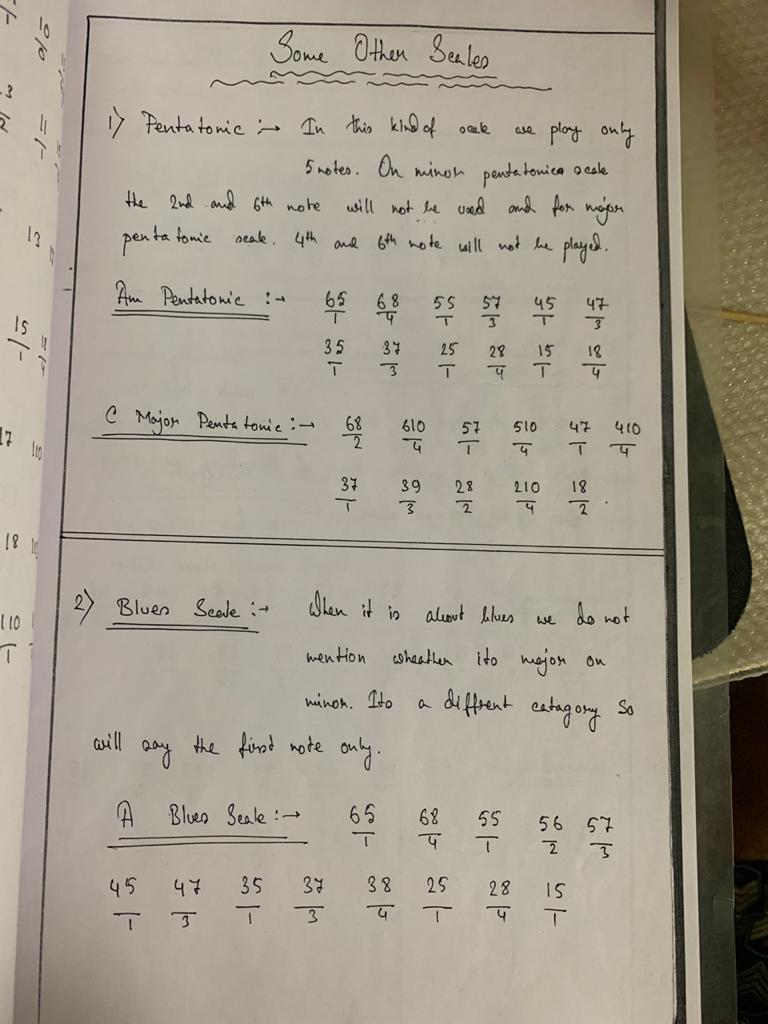 Some Other Scales
1) Pentatonic :→ In this kind of scale we play only
5 notes. On minor pentatonica scale
the 2nd and 6th note will not be used and for major
pentatonic scale. 4th and 6th note will not be played.
Am Pentatonic :→ 65/1 68/4 55/1 57/3 45/1 47/3
35/1 37/3 25/1 28/4 15/1 18/4
C Major Pentatonic :→ 68/2 610/4 57/1 510/4 47/1 410/4
37/1 39/3 28/2 210/4 18/2 .
2) Blues Scale :→ When it is about blues we do not
mention wheather its major or
minor. Its a diffrent catagory So
will say the first note only.
A Blues Scale :→ 65/1 68/4 55/1 56/2 57/3
45/1 47/3 35/1 37/3 38/4 25/1 28/4 15/1
13
15/1
18
110/1